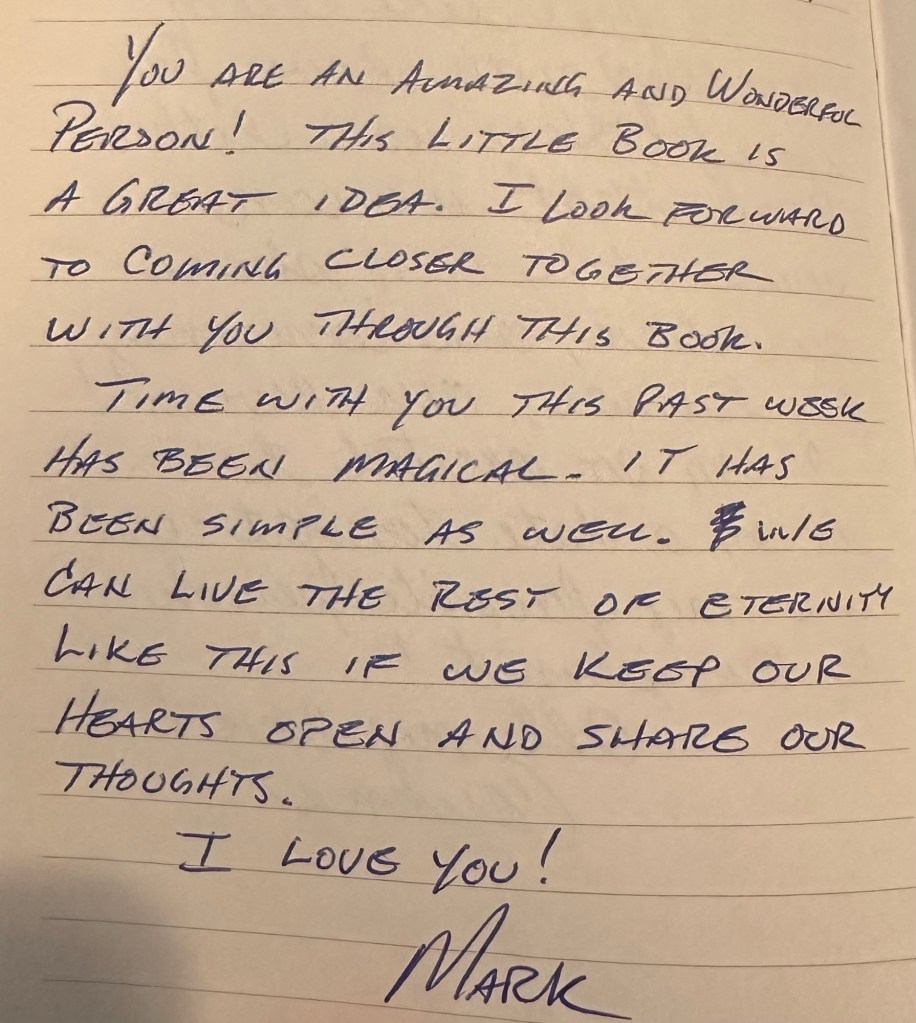 You are an Amazing and Wonderful
Person! This Little Book is
a Great idea. I Look Forward
to Coming closer together
with you through this Book.
Time with you this past week
has been magical. It has
been simple as well. We
can live the rest of eternity
like this if we keep our
hearts open and share our
thoughts.
I love you!
Mark